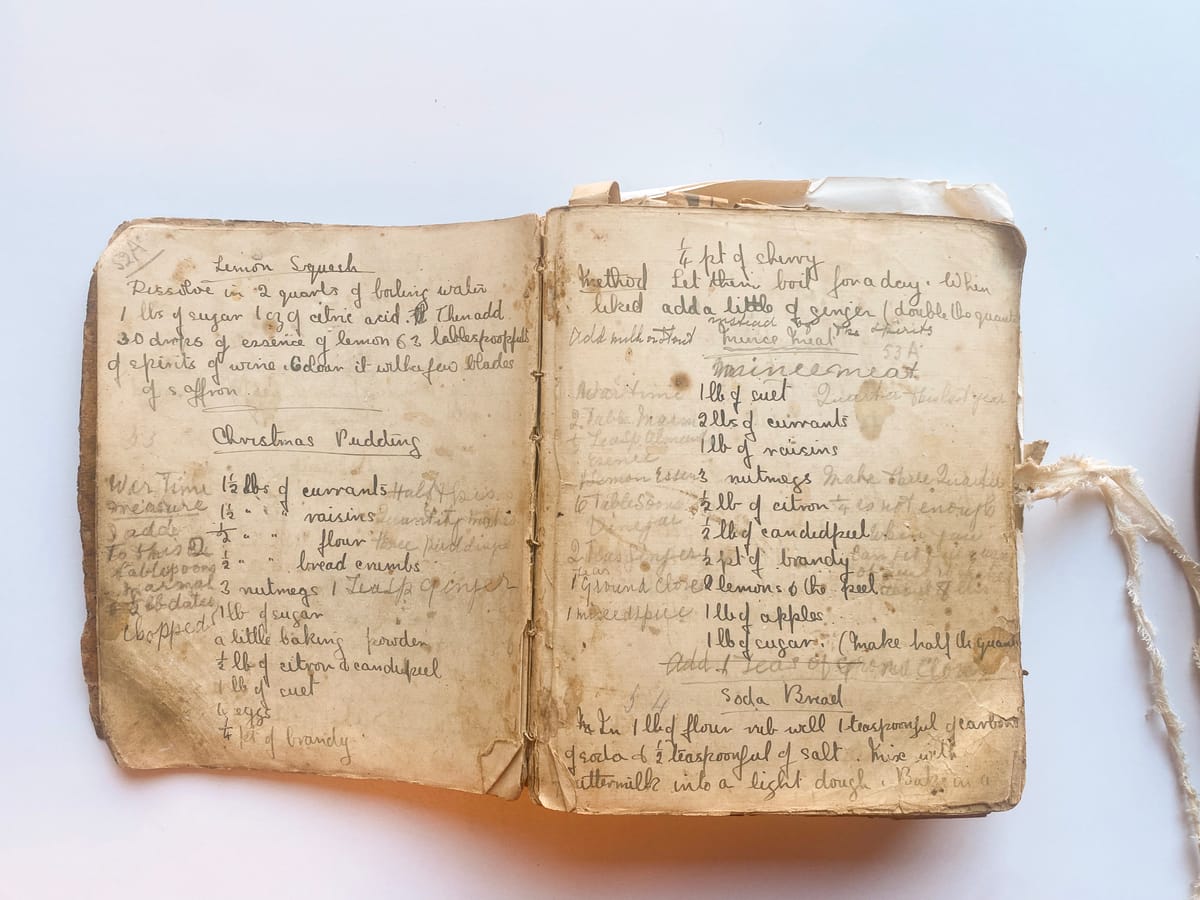 52A
Lemon Squash
Dissolve in 2 quarts of boiling water
1 lbs of sugar 1 oz of citric acid. Then add
30 drops of essence of lemon & 3 tablespoonfuls
of spirits of wine. Colour it with a few blades
of saffron.
53
Christmas Pudding
War Time
measure
I add
to this 2
tablespoons
marmal
dates
chopped
1½ lbs of currants Half this
1½ " " raisins quantity makes
½ " " flour three puddings
½ " " bread crumbs
3 nutmegs 1 Teasp ginger
1 lb of sugar
a little baking powder
½ lb of citron & candid peel
1 lb of suet
4 eggs
¼ pt of brandy
¼ pt of cherry
Method Let them boil for a day. When
liked add a little of ginger (double the quant
instead of the spirits
Add milk or stout Mince Meat
53A
Mincemeat
War time 1 lb of suet Quarter this last year
2 Table Marm 2 lbs of currants
Teasp Almond 1 lb of raisins
Essence
Lemon Essen 3 nutmegs Make three Quarter
6 Table Spoons ½ lb of citron ¼ is not enough
Vinegar ½ lb of candid peel when you
2 Teas Ginger ½ pt of brandy can get
1 Ground Clove 2 lemons & the peel
1 mixed spice 1 lb of apples
1 lb of sugar. (Make half the quant
Add 1 Teas of Ground Cloves
54
Soda Bread
In 1 lb of flour rub well 1 teaspoonful of carbon
of soda & ½ teaspoonful of salt. Mix with
uttermilk into a light dough. Bake in a